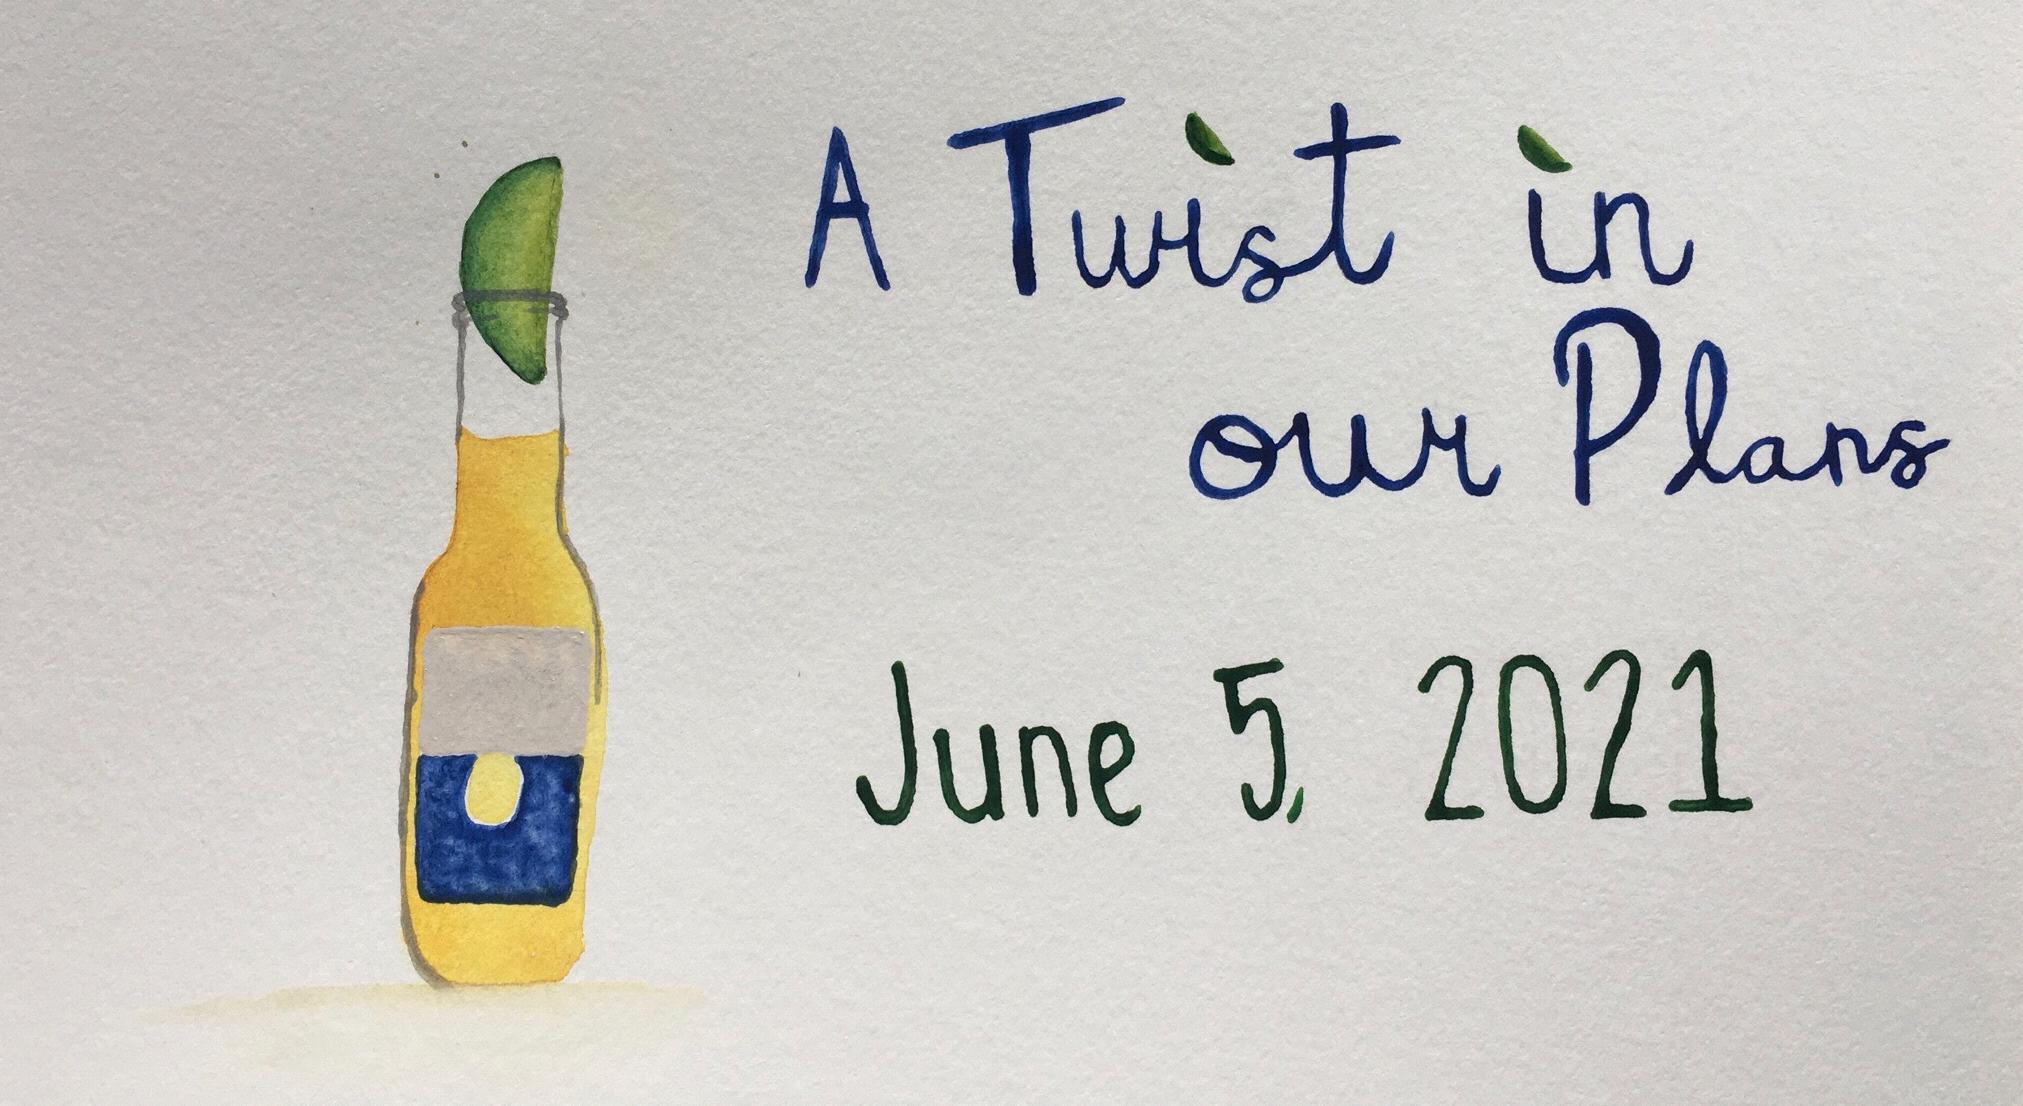 A Twist in
our Plans
June 5, 2021